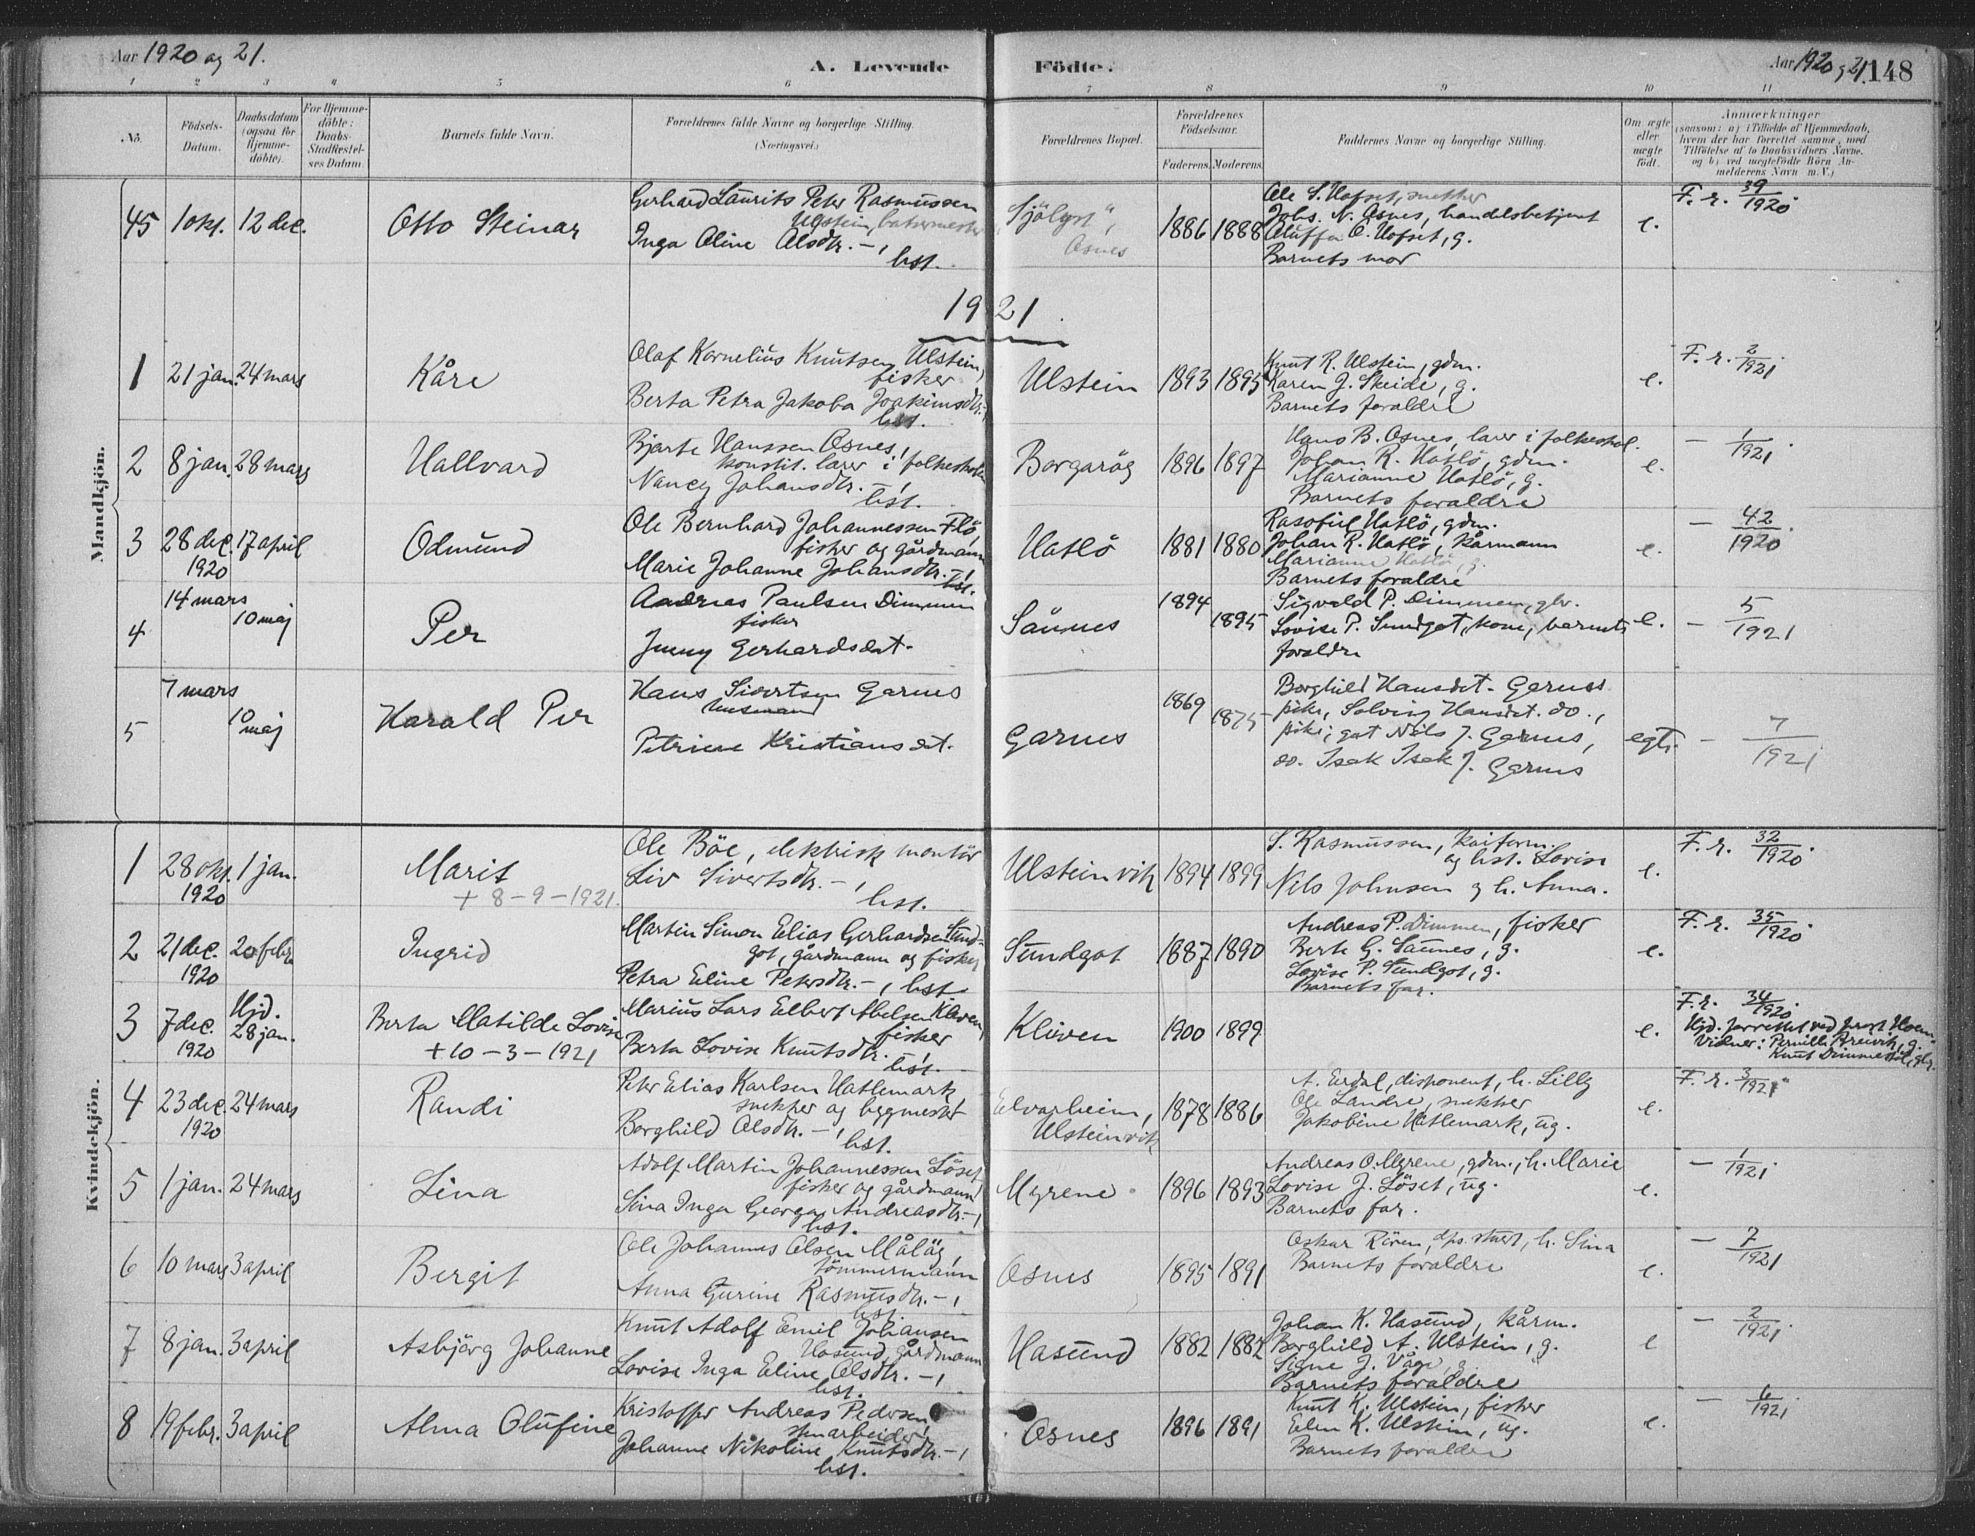 Aar 1920 og 21.
A. Levende Födte.
Aar 1920 og 21. 148
1 2 3 4 5 6 7 8 9 10 11
No.
Födsels-Datum.
Daabsdatum (ogsaa for Hjemme-döbte).
For Hjemme-döbte: Daabs-Stadfæstel-ses Datum.
Barnets fulde Navn.
Forældrenes fulde Navne og borgerlige Stilling. (Næringsvei.)
Forældrenes Bopæl.
Forældrenes Födselsaar.
Faderens. Moderens.
Faddernes Navne og borgerlige Stilling.
Om ægte eller uægte födt.
Anmærkninger
(saasom: a) i Tilfælde af Hjemmedaab, hvem der har forrettet samme, med Tilföielse af to Daabsvidners Navne, og b) ved uægtefödte Börn An-melderens Navn m. V.)
Mandkjön.
45 1 okt. 12 dec. Otto Steinar
Gerhard Laurits Peter Rasmussen
Ulstein, batermester
Inga Oline Olsdtr. —, hst.
"Sjölyst", Osnes
1886 1888
Ole S. Hofset, snekker
Johs. N. Osnes, handelsbetjent
Oluffa O. Hofset, g.
Barnets mor
e. F. r. 39/1920.
1921
1 21 jan. 24 mars Kåre
Olaf Kornelius Knutsen Ulstein,
fisker
Berta Petra Jakoba Joakimsdtr. —,
hst.
Ulstein 1893 1895
Knut R. Ulstein, gdm.
Karen J. Skeide, g.
Barnets foraldre
e. F. r. 2/1921.
2 8 jan. 28 mars Hallvard
Bjarte Hanssen Osnes,
konstit. lærer i folkeskolen
Nancy Johansdtr. —, hst.
Borgarög 1896 1897
Hans B. Osnes, lærer i folkeskol.
Johan R. Hatlö, gdm.
Marianne Hatlö, g.
Barnets foraldre
e. — 1/1921.
3 28 dec. 1920 17 april Odmund
Ole Bernhard Johannessen Flö,
fisker og gårdmann
Marie Johanne Johansdtr. —, hst.
Hatlö 1881 1880
Rasofiel Hatlö, gdm.
Johan R. Hatlö, kårmann
Marianne Hatlö, g.
Barnets foraldre
e. — 42/1920.
4 14 mars 10 maj Per
Andreas Paulsen Dimmen
fisker
Jenny Gerhardsdat.
Saunes 1894 1895
Sigvald P. Dimmen, gbr.
Lovise P. Sundgot, kone, barnets
foraldre
e. — 5/1921
5 7 mars 10 maj Harald Per
Hans Sivertsen Garnes
husmand
Petrine Kristiansdat.
Garnes 1869 1875
Borghild Hansdat. Garnes
pike, Solveig Hansdat. do.,
pike; gut Nils J. Garnes,
do. Isak Isak J. Garnes
egte. — 7/1921
Kvindekjön.
1 28 okt. 1920 1 jan. Marit
+ 8-9-1921.
Ole Böe, elektrisk montör
Liv Sivertsdtr. —, hst.
Ulsteinvik 1894 1899
S. Rasmussen, kaiform.
og hst. Lovise
Nils Johnsen og h. Anna.
e. F. r. 32/1920.
2 21 dec. 1920 20 febr. Ingrid
Martin Simon Elias Gerhardsen Sund-
got, gårdmann og fisker
Petra Eline Petersdtr. —, hst.
Sundgot 1887 1890
Andreas P. Dimmen, fisker
Berte G. Saunes, g.
Lovise P. Sundgot, g.
Barnets far.
e. F. r. 35/1920.
3 7 dec. 1920 Hjd. 28 jan. Berta Matilde Lovise
+ 10-3-1921
Marius Lars Elbert Abelsen Kleven,
fisker
Berta Lovise Knutsdtr. —, hst.
Kleven 1900 1899
e. F. r. 34/1920.
Hjd. forrettet ved prost
Vidner: Pernille Breivik, g.
4 23 dec. 1920 24 mars Randi
Peter Elias Karlsen Hatlemark
snekker og byggmester
Borghild Olsdtr. —, hst.
Elvarheim, Ulsteinvik 1878 1886
A. Eidal, disponent, h. Lilly
Ole Landre, snekker
Jakobine Hatlemark, ug.
e. F. r. 3/1921.
5 1 jan. 24 mars Lina
Adolf Martin Johannessen Löset,
fisker og gårdmann
Lina Inga Georga Andreasdtr. —,
hst.
Myrene 1896 1893
Andreas O. Myrene, gdm., h. Marie
Lovise J. Löset, ug.
Barnets far.
e. — 1/1921.
6 10 mars 3 april Bergit
Ole Johannes Olsen Måløy,
tömmermann
Anna Gurine Rasmusdtr. —,
hst.
Osnes 1895 1891
Oskar Rören, h. Sina
Barnets foraldre
e. — 7/1921
7 8 jan. 3 april Asbjörg Johanne
Knut Adolf Emil Johansen
Hasund, gårdmann
Lovise Inga Eline Olsdtr. —,
hst.
Hasund 1882 1882
Johan K. Hasund, kårm.
Borghild A. Ulstein, g.
Signe J. Våge, g.
Barnets foraldre
e — 2/1921.
8 19 febr. 3 april Alma Olufine
Kristoffer Andreas Pedersen,
Johanne Nikoline Knutsdtr. —,
hst.
Osnes 1896 1891
Knut K. Ulstein, fisker
Elen K. Ulstein, ug.
Barnets foraldre
e. — 6/1921.